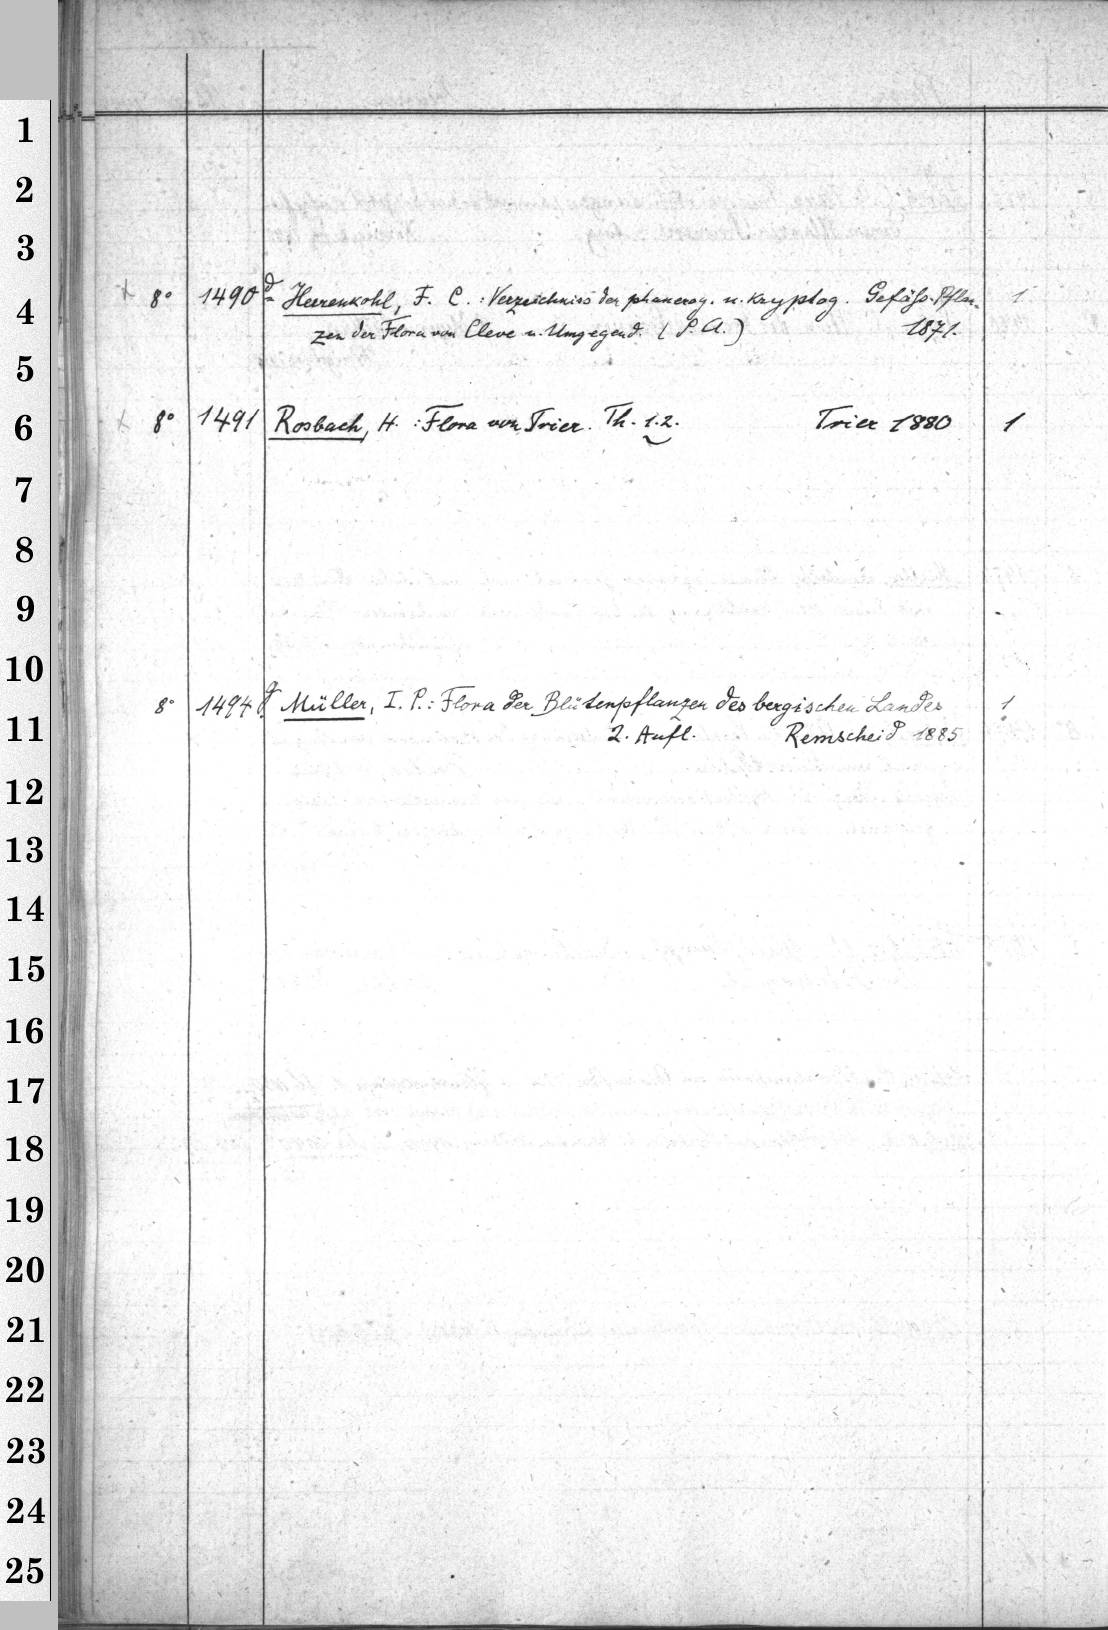 1
2
3
4
5
6
7
8
9
10
11
12
13
14
15
16
17
18
19
20
21
22
23
24
25
+ 8° 1490 d Heerenkohl, F. C.: Verzeichniss der phanerog. u. kryptog. Gefäss-Pflan- 1
zen der Flora von Cleve u. Umgegend. (S. A.) 1871.
+ 8° 1491 Rosbach, H.: Flora von Trier. Th. 1.2. Trier 1880 1
8° 1494 g Müller, I. P.: Flora der Blütenpflanzen des bergischen Landes 1
2. Aufl. Remscheid 1885